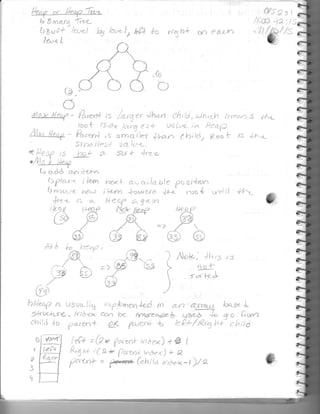 Heap or Heap Tree
↳ Binary Tree
↳ Built level by level, left to right on each
level
Max Heap - Parent is larger than child, which means the
root is the largest value in Heap
Min Heap - Parent is smaller than child, Root is the
smallest value.
* Heap is not a sort tree
* Max Heap
↳ add an item
↳ place item next available position
↳ move new item towards the root until the
tree is a Heap again
Heap Heap Not Heap Heap
=>
Add to heap:
=>
Note: this is
not
sorted
↳ Heap is usually implemented in an array based
structure. index can be used to go from
child to parent OR parent to left/Right child
0 root left = (2 * parent index) + 1
1 left Right = (2 * parent index) + 2
2 Right parent = (child index - 1)/2
3
4